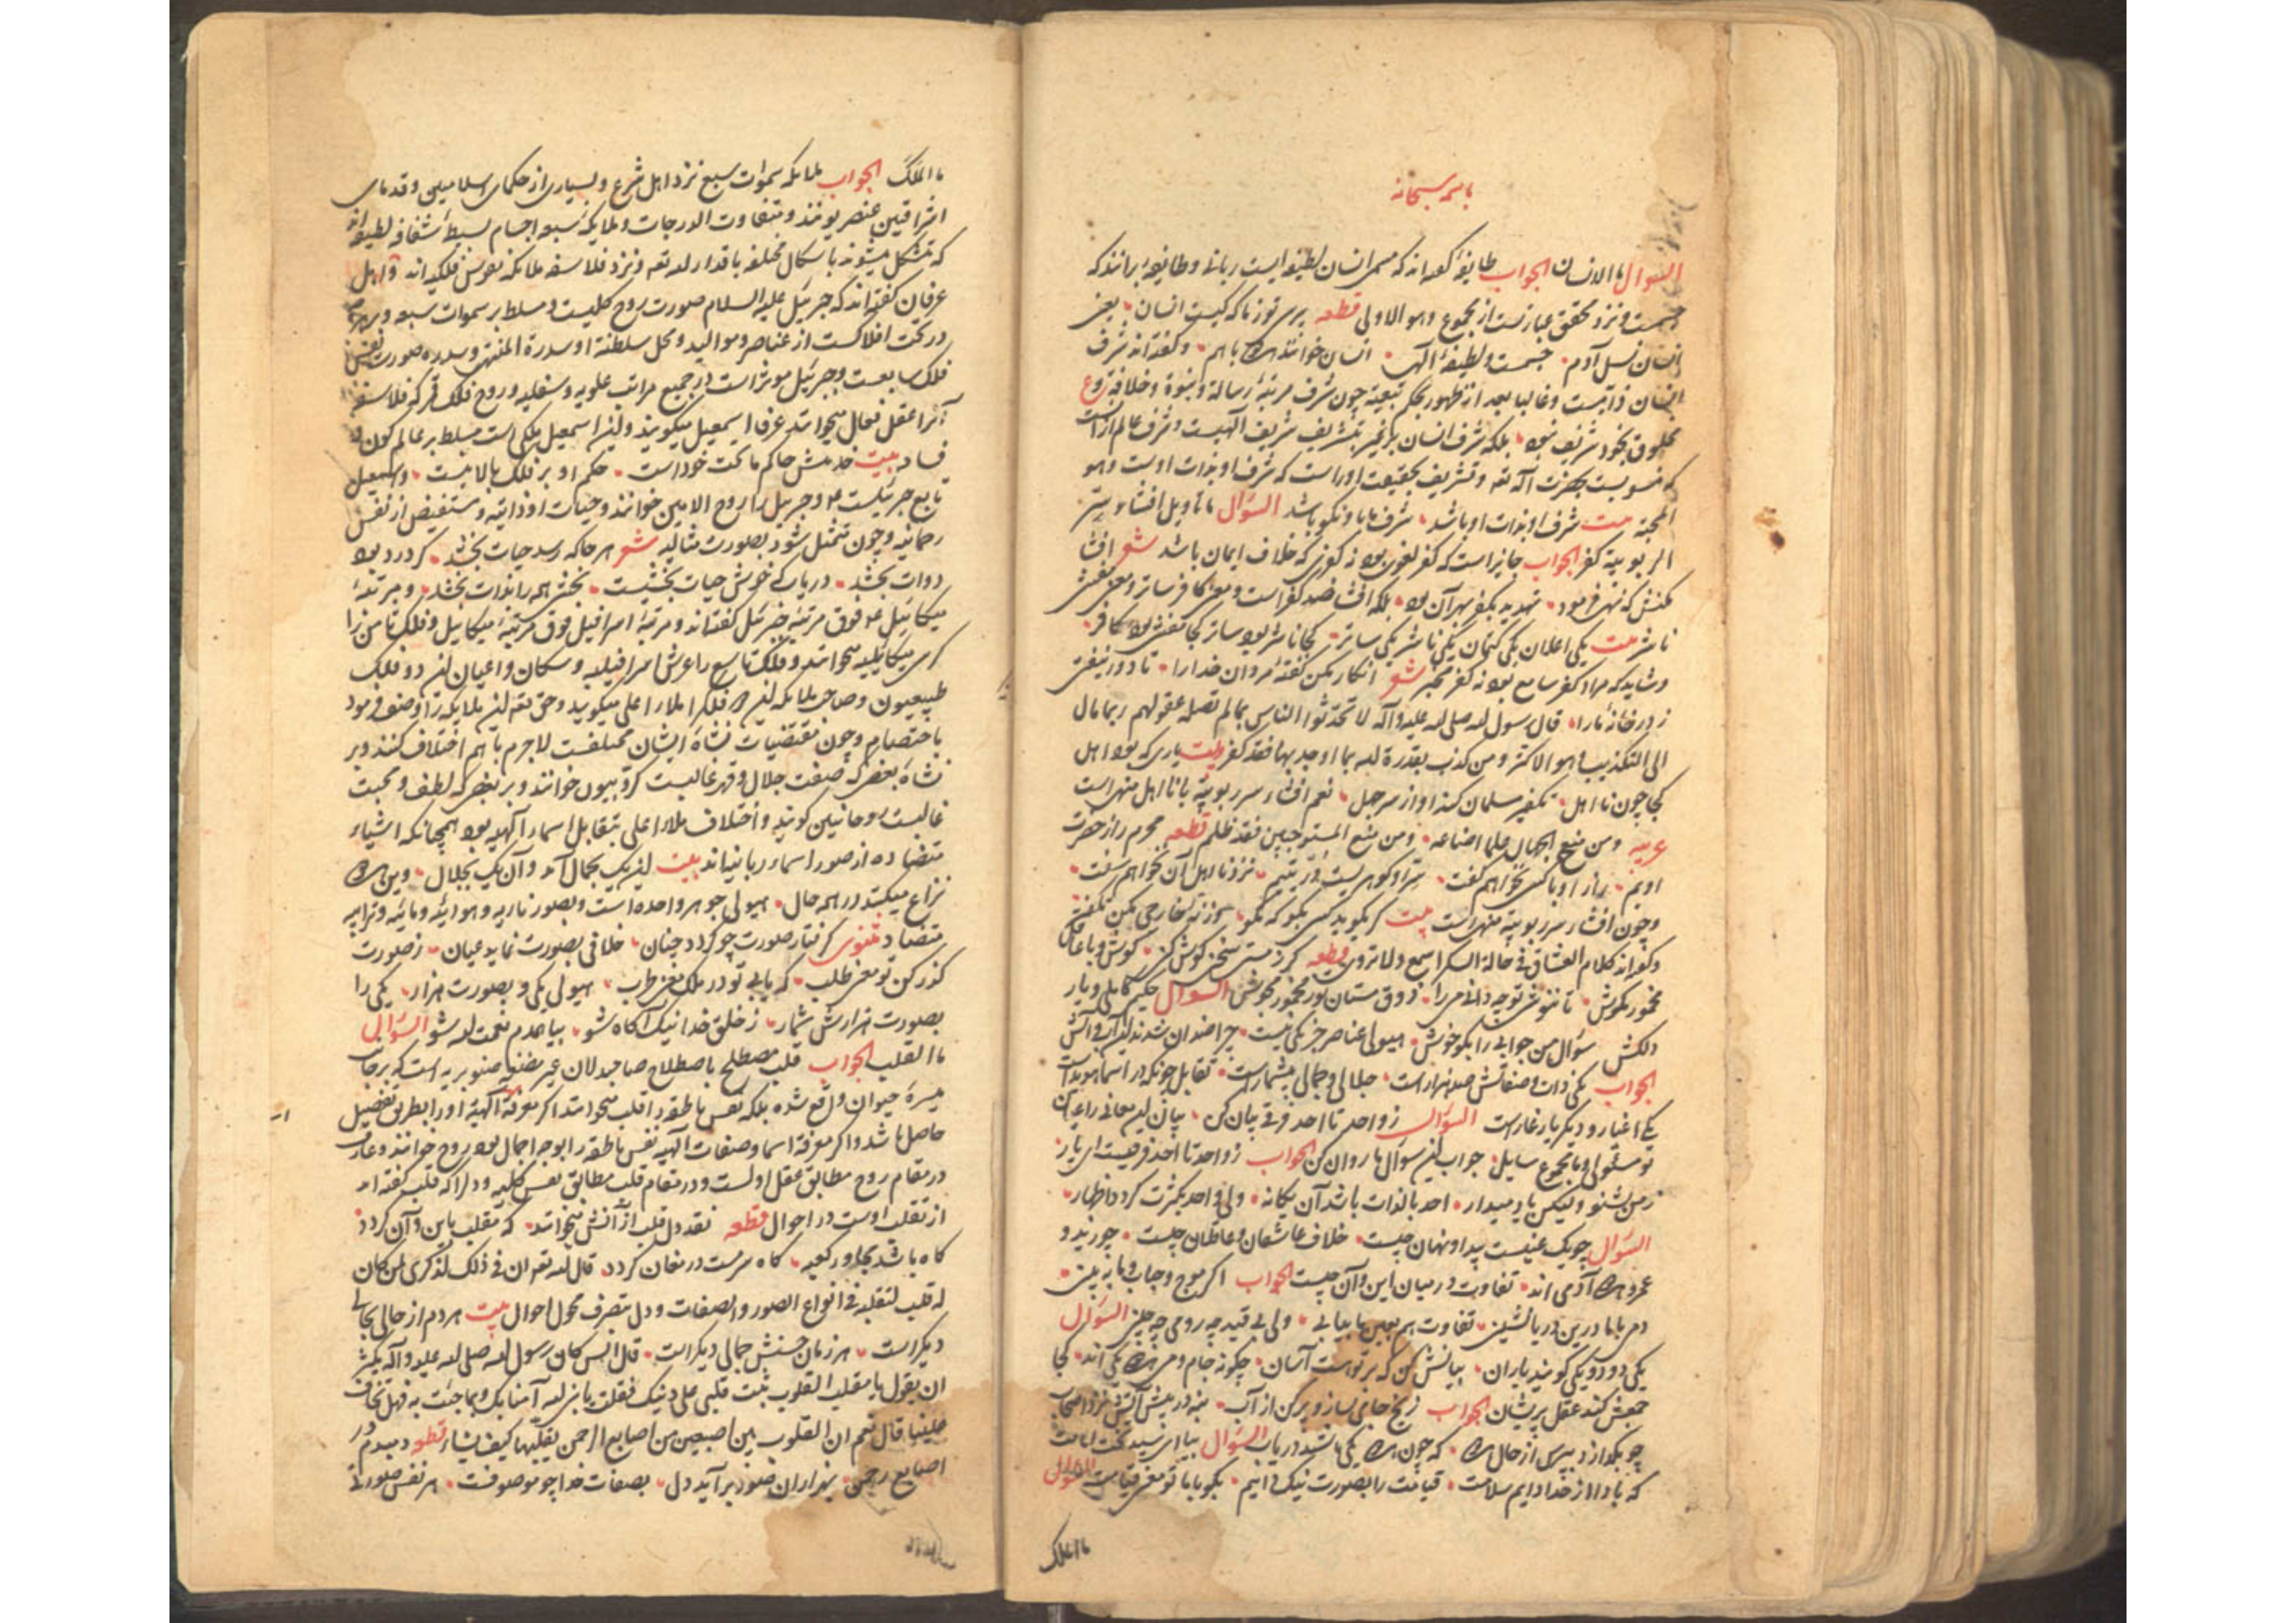 باسمه سبحانه
السوال ما الانسان الجواب طایفهٔ گفته‌اند که مسمی انسان لطیفه ایست ربانی و طایفهٔ برانند که
جسمست و نزد محقق عبارتست از مجموع وهو الاولی قطعه پرسی تو ز ما که کیست انسان یعنی
انسان نسل آدم جسمست و لطیفهٔ الهی انسان خوانند هر دو با هم و گفته‌اند شرف
انسان ذاتیست و غالبا بعد از ظهور بحکم تبعیة چون شرف مرتبهٔ رسالة و نبوة و خلافة
مخلوق بخود شریف نبود بلکه شرف انسان و غیره بتشریف شریف الهیست و شرف عالم از آنست
که منسوبست بحضرت اله تعه و تشریف بحقیقت او راست که شرف او بذات اوست وهو
الحجة بیت شرف او بذات او باشد شرف ما باو نکو باشد السؤال ما تاویل افشاء سر
الربوبیة کفر الجواب جایز است که کفر لغوی بود نه کفری که خلاف ایمان باشد شعر افشا
مکنش که نهی فرمود تهدید بکفر بهر آن بود بلکه افشا ضد کفر است و معنی کافر ساتر و معنی مفشی
ناشر بیت یکی اعلان یکی کتمان یکی ناشر یکی ساتر کجا ناشر بود ساتر کجا مفشی بود کافر
و شاید که مراد کفر سامع بود نه کفر مخبر شعر انکار مکن گفتهٔ مردان خدا را تا دور نیفتی
ز در خانهٔ ما را قال رسول لله صلی لله علیه و آله لا تحدثوا الناس بما لم تصله عقولهم ربما مال
الی التکذیب وهو الاکثر و من کذب بقدرة لله بما اوجد بها فقد کفر بیت یاری که بود اهل
کجا چون نااهل تکفیر مسلمان کند او از سر جهل نعم افشاء سر ربوبیة با نااهل منهی است
عربیه و من منح الجهال علما اضاعه و من منع المستوجبین فقد ظلم قطعه محرم راز حضرت
اویم راز او با کسی نخواهم گفت سر او گوهریست در یتیم نزد نااهل آن نخواهم سفت
و چون افشاء سر ربوبیة منهی است بیت گر بگوید کسی بگو که مگو
و گفته‌اند کلام العشاق فی حالة السکر اسمع ولا تروی قطعه گر ز مستی سخن کوش کن
مخمور مگوش تا ننوشی توجه دانی می را ذوق مستان نور مخمور مجوش السوال حکیم کاملی و یار
دلکش سؤال من جوابی را بگو خوش هیولی عناصر جز یکی نیست چرا ضدان شدند این آب و آتش
الجواب یکی ذات و صفاتش صد هزار است جلالی و جمالی بیشمار است تقابل چونکه در اسما هویداست
یکی اغیار و دیگر یار غار است السؤال ز واحد تا احد فرقی بیان کن بیان این معانی را عیان
تو مسئولی و ما مجموع سایل جواب این سؤال ما روان کن الجواب ز واحد تا احد فرقیست ای یار
ز من بشنو ولیکن یاد میدار احد بالذات باشد آن یگانه ولی واحد بکثرت کرد اظهار
السؤال چو یک عینیست پیدا و نهان چیست خلاف عاشقان و عاقلان چیست چو زید و
عمرو هر دو آدمی‌اند تفاوت در میان این و آن چیست الجواب اگر موج و حباب و ما به بین
دمی با ما درین دریا نشینی تفاوت هم بعین ما بیابی ولی بی قید چه رومی چه چینی السؤال
یکی دو دو یکی گویند یاران بیانش کن که بر تو است آسان چگونه جام و می هر دو یکی‌اند کجا
جمعش کند عقل پریشان الجواب ز یخ جامی بساز و پر کن از آب بنه در پیش آتش نزد اصحاب
چو بگدازد بپرس از حال هر دو که چون هر دو یکی باشند دریاب السؤال بیا ای سید تخت امامت
که بادا از خدا دایم سلامت قیامت را بصورت نیک دانیم بگو با ما تو معنی قیامت السؤال
ما الملک
ما الملک الجواب ملایکه سموات سبع نزد اهل شرع و بسیاری از حکمای اسلامیین و قدمای
اشراقیین عنصریونند و متفاوت الدرجات و ملایکه سبعه اجسام بسیطه شفافه لطیفه‌اند
که متشکل میشوند باشکال مختلفه باقدار لله تعه و نزد فلاسفه ملایکه نفوس فلکیه‌اند و اهل
عرفان گفته‌اند که جبرئیل علیه السلام صورت روح کلیست و مسلط بر سموات سبعه و
در تحت افلاکست از عناصر و موالید و محل سلطنة او سدرة المنتهی و سدره صورت نفس
فلک سابعست و جبرئیل موثر است در جمیع مراتب علویه و سفلیه و روح فلک قمر که فلاسفه
آنرا عقل فعال میخوانند عرفا اسمعیل میگویند و این اسمعیل ملکی است مسلط بر عالم کون و
فساد بیت خدمتش حاکم ماتحت خود است حکم او بر فلک بالا نیست و اسمعیل
تابع جبرئیلست ع و جبریل را روح الامین خوانند و حیات او ذاتیه و مستفیض از نفس
رحمانیه و چون متمثل شود بصورت مثالیه شعر هر جا که رسد حیات بخشد گر درد بود
دوات بخشد دریاب که خوش حیات بخشیست بخشی همه را نذات بخشد و مرتبهٔ
میکائیل ع فوق مرتبهٔ جبرئیل گفته‌اند و مرتبهٔ اسرافیل فوق مرتبهٔ میکاییل و فلک ثامن را
کرسی میکائیلیه میخوانند و فلک تاسع را عرش اسرافیلیه و سکان و اعیان این دو فلک
طبیعیون و صاحب ملایکه این دو فلک را ملاء اعلی میگوید و حق تعه این ملایکه را وصف فرمود
باختصام و چون مقتضیات نشأة ایشان مختلفست لاجرم با هم اختلاف کنند و بر
نشأة بعضی که صفت جلال و قهر غالبست کروبیون خوانند و بر بعضی که لطف و محبت
غالبست روحانیین گویند و اختلاف ملاء اعلی بتقابل اسماء الهیه بود همچنانکه اشیاء
متضاده از صور اسماء ربانیه‌اند بیت این یک بجمال آمد و آن یک بجلال وین هر دو
نزاع میکنند در همه حال هیولی جوهر واحده است و بصور ناریه و هوائیه و مائیه و ترابیه
متضاد مثنوی گرفتار صورت چو گردد چنان خلافی بصورت نماید عیان ز صورت
گذر کن تو معنی طلب که یابی تو در ملک معنی طرب هیولی یکی و بصورت هزار یکی را
بصورت هزارش شمار ز خلق خدا نیک آگاه شو بیا همدم نعمت لله شو السؤال
ما القلب الجواب قلب مصطلح باصطلاح صاحبدلان غیر مضغه صنوبریه است که بر جانب
میسرهٔ حیوان واقع شده بلکه نفس ناطقه را قلب میخوانند اگر معرفة الهیة او را بطریق تفصیل
حاصل باشد و اگر معرفة اسما و صفات الهیه نفس ناطقه را بوجه اجمال بود روح خوانند و عارف
در مقام روح مطابق عقل اولست و در مقام قلب مطابق نفس کلیه و دل را که قلب گفته‌اند
از تقلب اوست در احوال قطعه نقد دل قلب از آنش میخوانند که مقلب باین و آن گردد
گاه باشد مجاور کعبه گاه سرمست در مغان گردد قال لله تعه ان فی ذلک لذکری لمن کان
له قلب لتقلبه فی انواع الصور والصفات و دل بتصرف محول احوال بیت هر دم از حالی بحالی
دیگر است هر زمان حسنش جمالی دیگر است قال انس کان رسول لله صلی لله علیه و آله یکثر
ان یقول یا مقلب القلوب ثبت قلبی علی دینک فقلت یا نبی لله آمنا بک وبما جئت به فهل تخاف
علینا قال نعم ان القلوب بین اصبعین من اصابع الرحمن یقلبها کیف یشاء قطعه دمبدم در
اصابع رحمن بهزاران صور برآید دل بصفات خدا چو موصوفست هر نفس صورتی